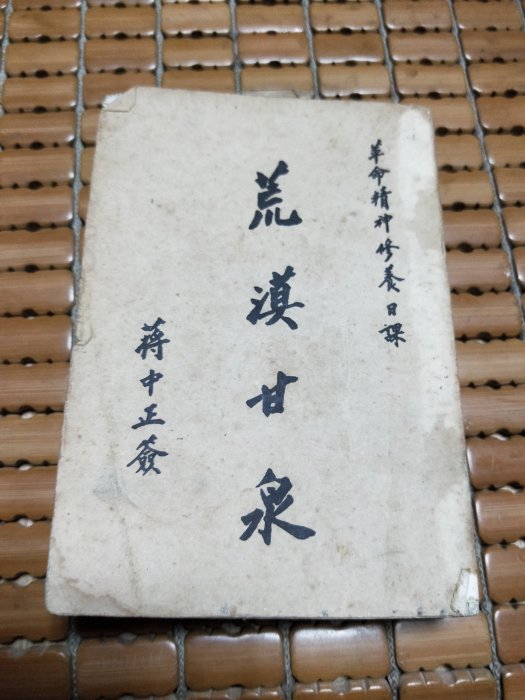 革命精神修養日課
荒漠甘泉
蔣中正簽